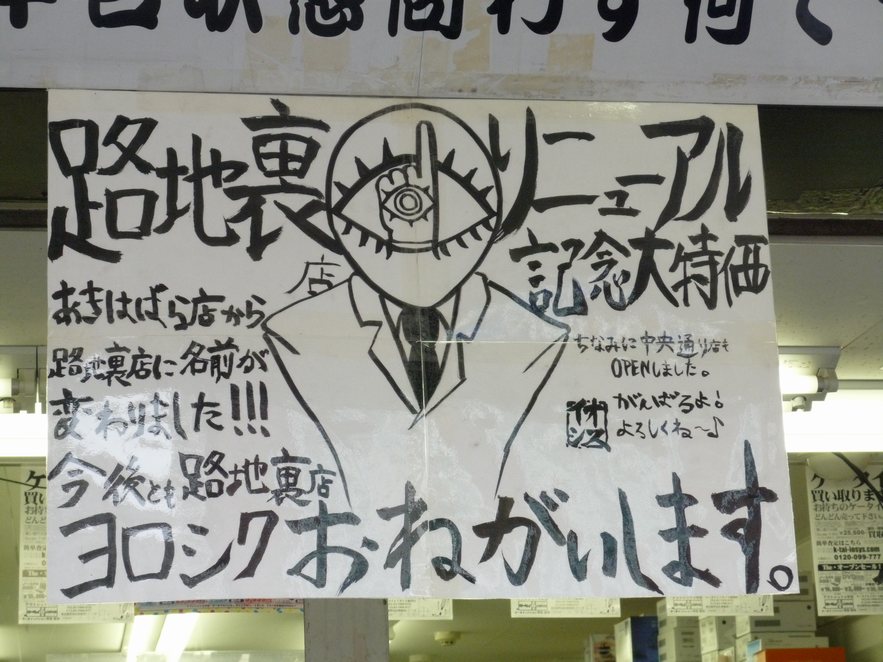 路地裏店
リニューアル
記念大特価
あきはばら店から
路地裏店に名前が
変わりました!!!
ちなみに中央通り店も
OPENしました。
イオシス
がんばるよ!
よろしくね〜♪
今後とも路地裏店
ヨロシクおねがいします。
買い取りま
お持ちのケータイ
どんどん売って下さい
k-tai-iosys.com
0120-099-777